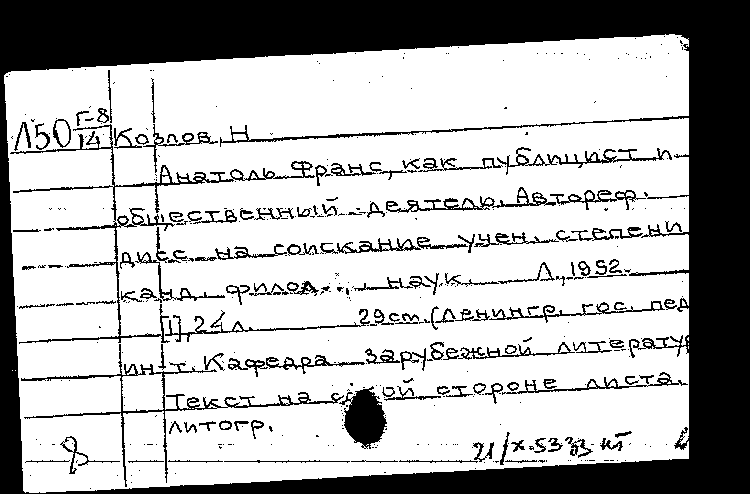 Л50 Г-8/14 Козлов, Н
Анатоль Франс, как публицист и
общественный деятель. Автореф.
дисс. на соискание учен. степени
канд. филол. наук. Л., 1952.
[1], 24 л. 29 cm. (Ленингр. гос. пед
ин-т. Кафедра зарубежной литератур
Текст на одной стороне листа.
литогр.
8 21/X-53